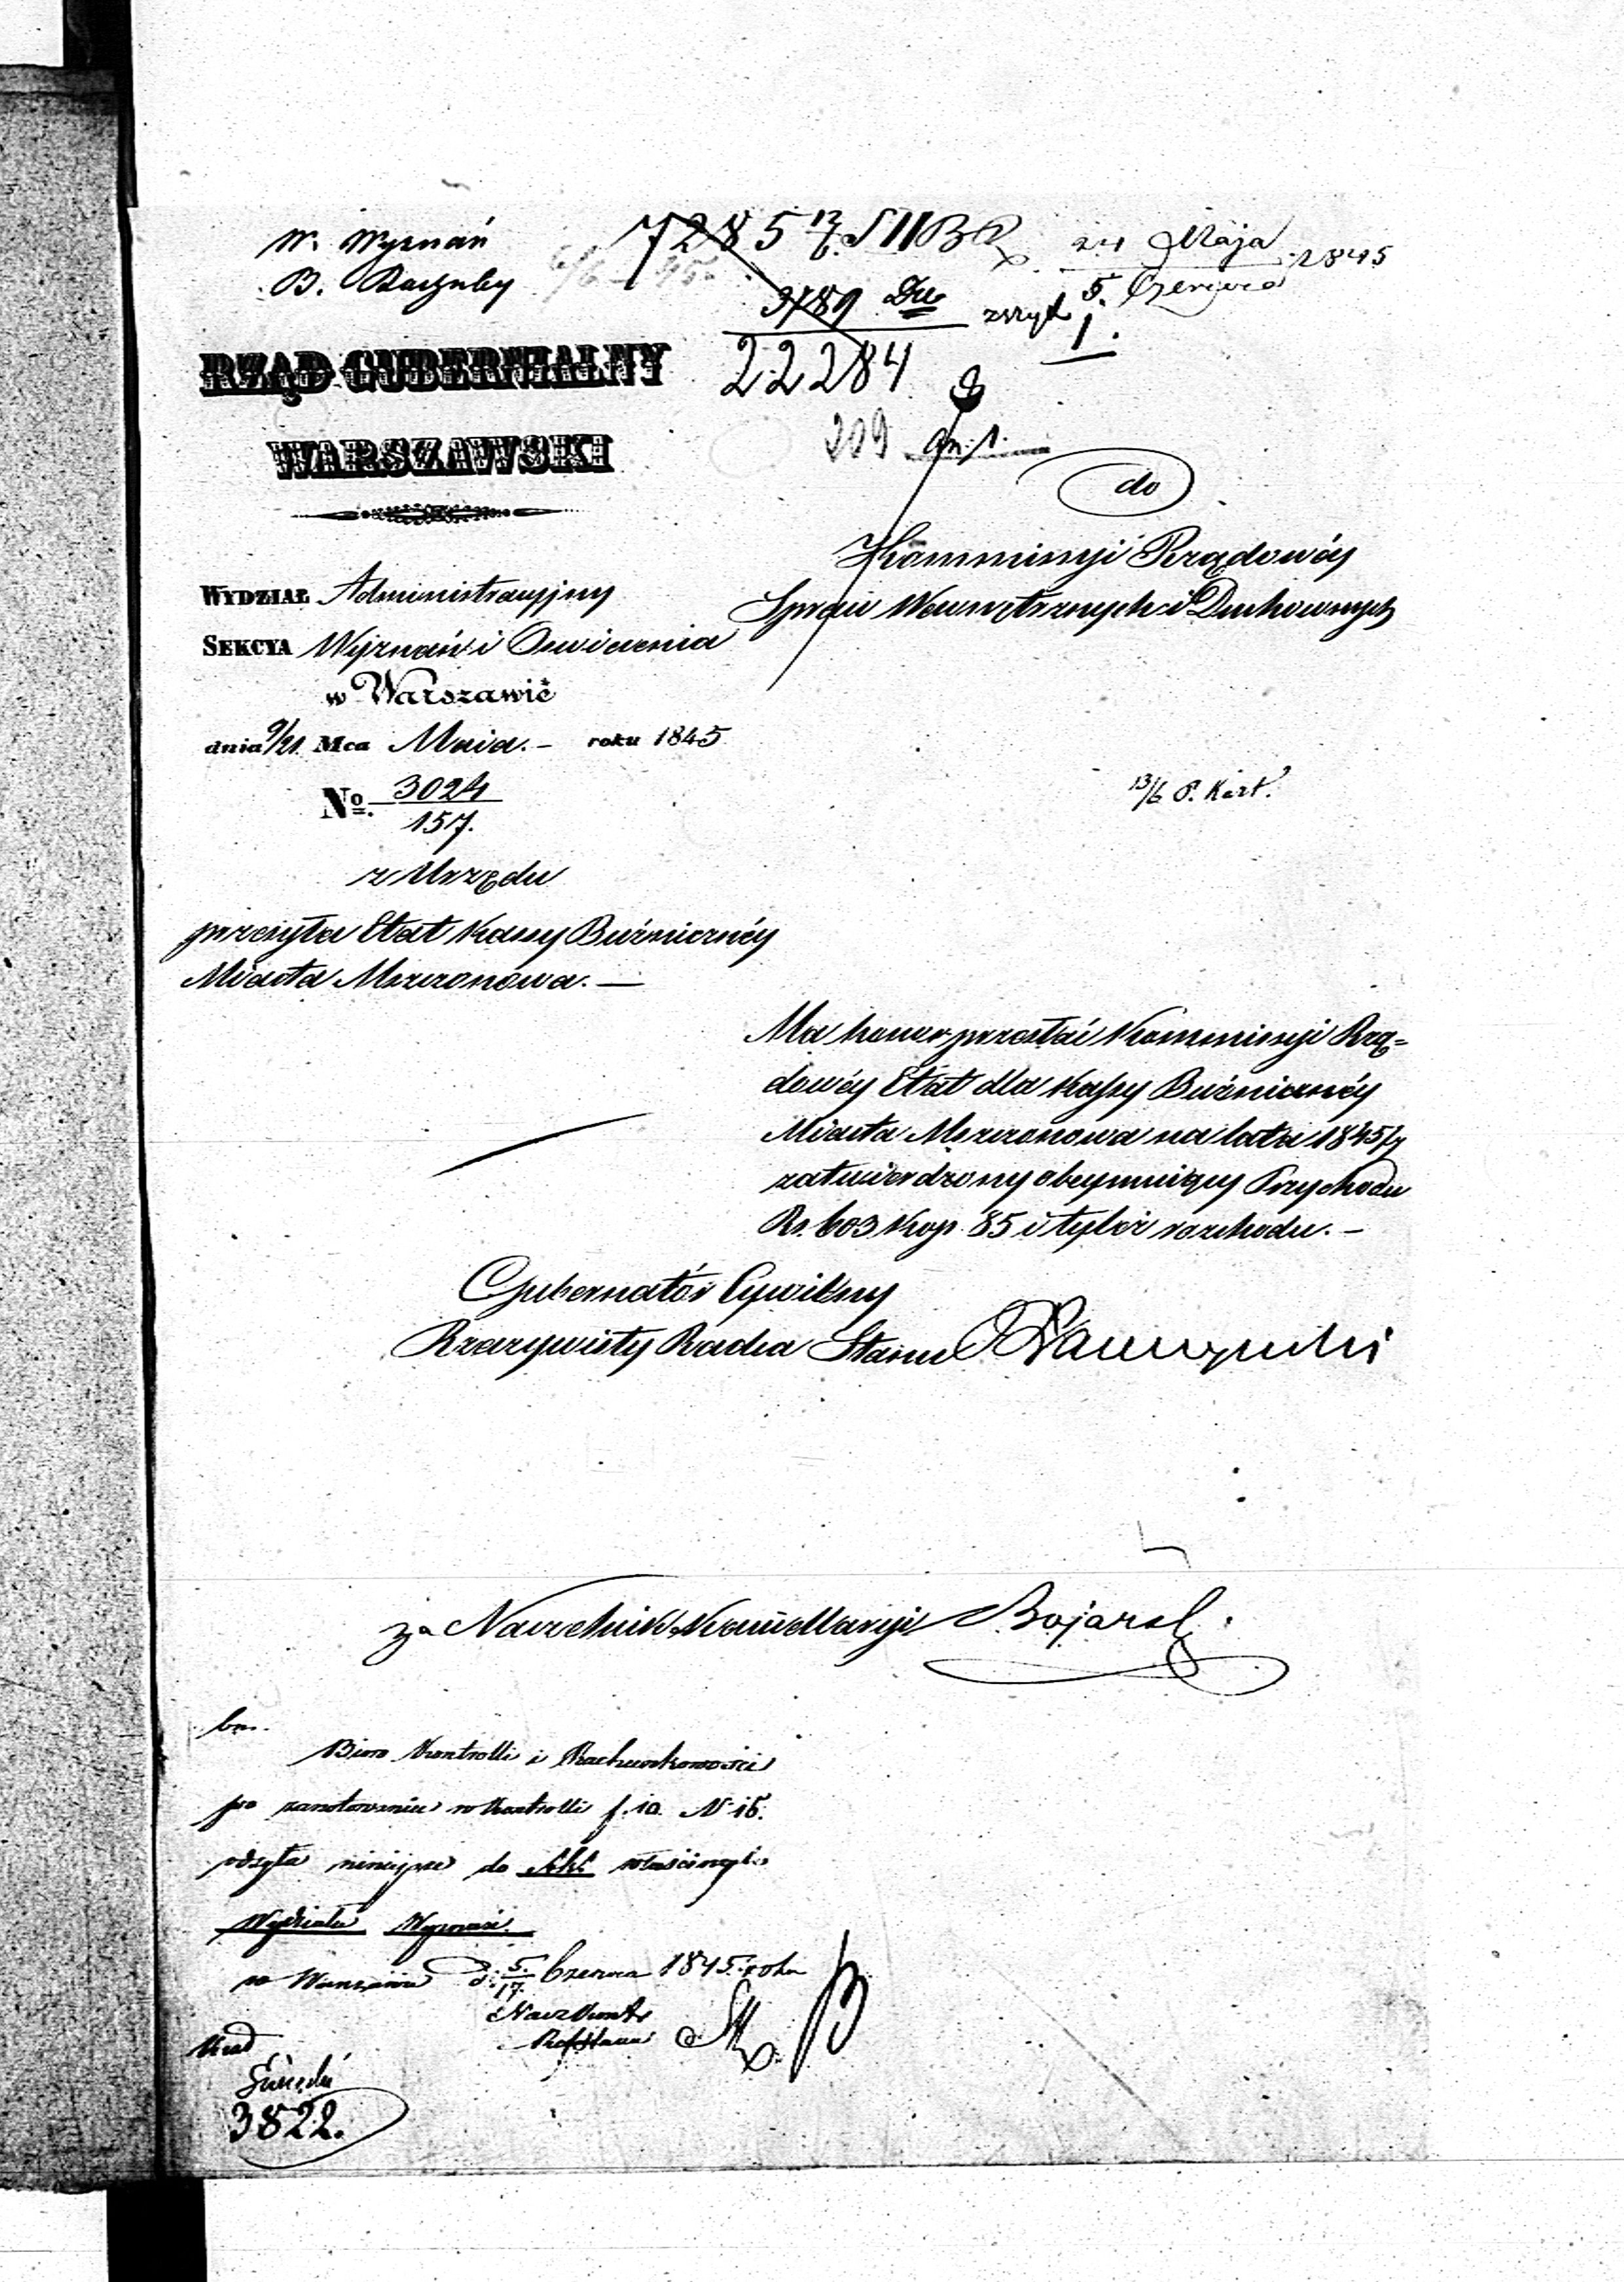 W. Wyznań
B. Rachuby
7285
24 Maja
5. Czerwca 1845
3789
zszyt 1.
22284
209
RZĄD GUBERNIALNY
WARSZAWSKI
do
Kommissyi Rządowéy
Spraw Wewnętrznych i Duchownych
WYDZIAŁ Administracyjny
SEKCYA Wyznań i Oswiecenia
w Warszawie
dnia 9/21 Mca Maia. – roku 1845
No. 3024
157.
13/6 P. Kart.
z Urzędu
przesyła Etat Kassy Bużnicznéy
Miasta Mszczonowa. —
Ma honor przesłać Kommissyi Rzą=
dowéy Etat dla Kassy Bużnicznéy
Miasta Mszczonowa na lata 1845/7
zatwierdzony obeymuiący Przychodu
Rs. 603 Kop. 85 i tyleż rozchodu. –
Gubernator Cywilny
Rzeczywisty Radca Stanu
za Naczelnik Kancellaryi
Biuro Kontrolli i Rachunkowości
po zanotowaniu w Kontrolli f. 10. N 15.
odsyła niniejsze do Sekc właściwych
Wydziału Wyznań.
w Warszawie d. 5/17. Czerwca 1845. roku
Nacz Kontr
3822.